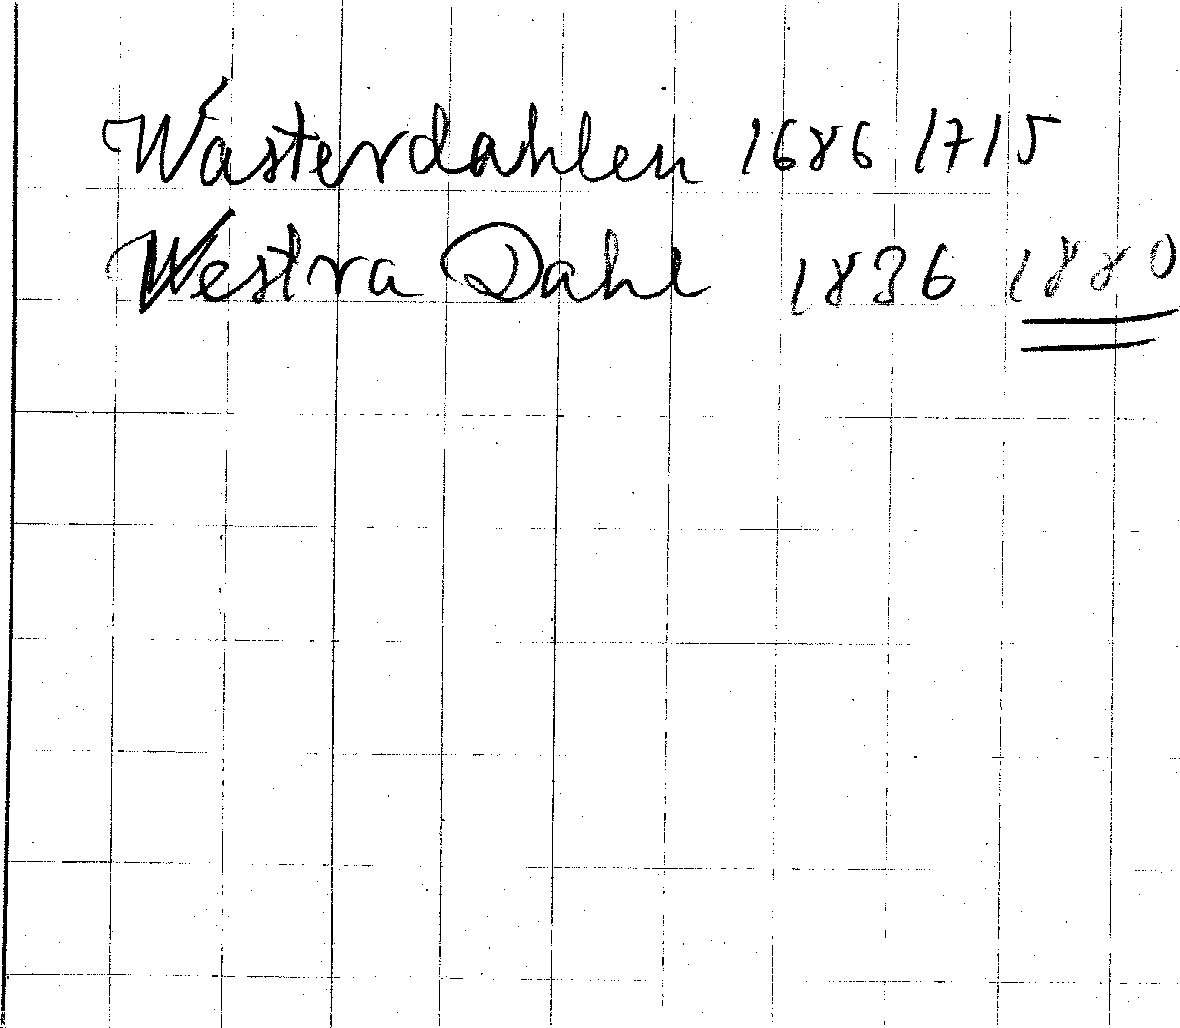 Wasterdahlen 1686 1715
Westra Dahl 1836 1880